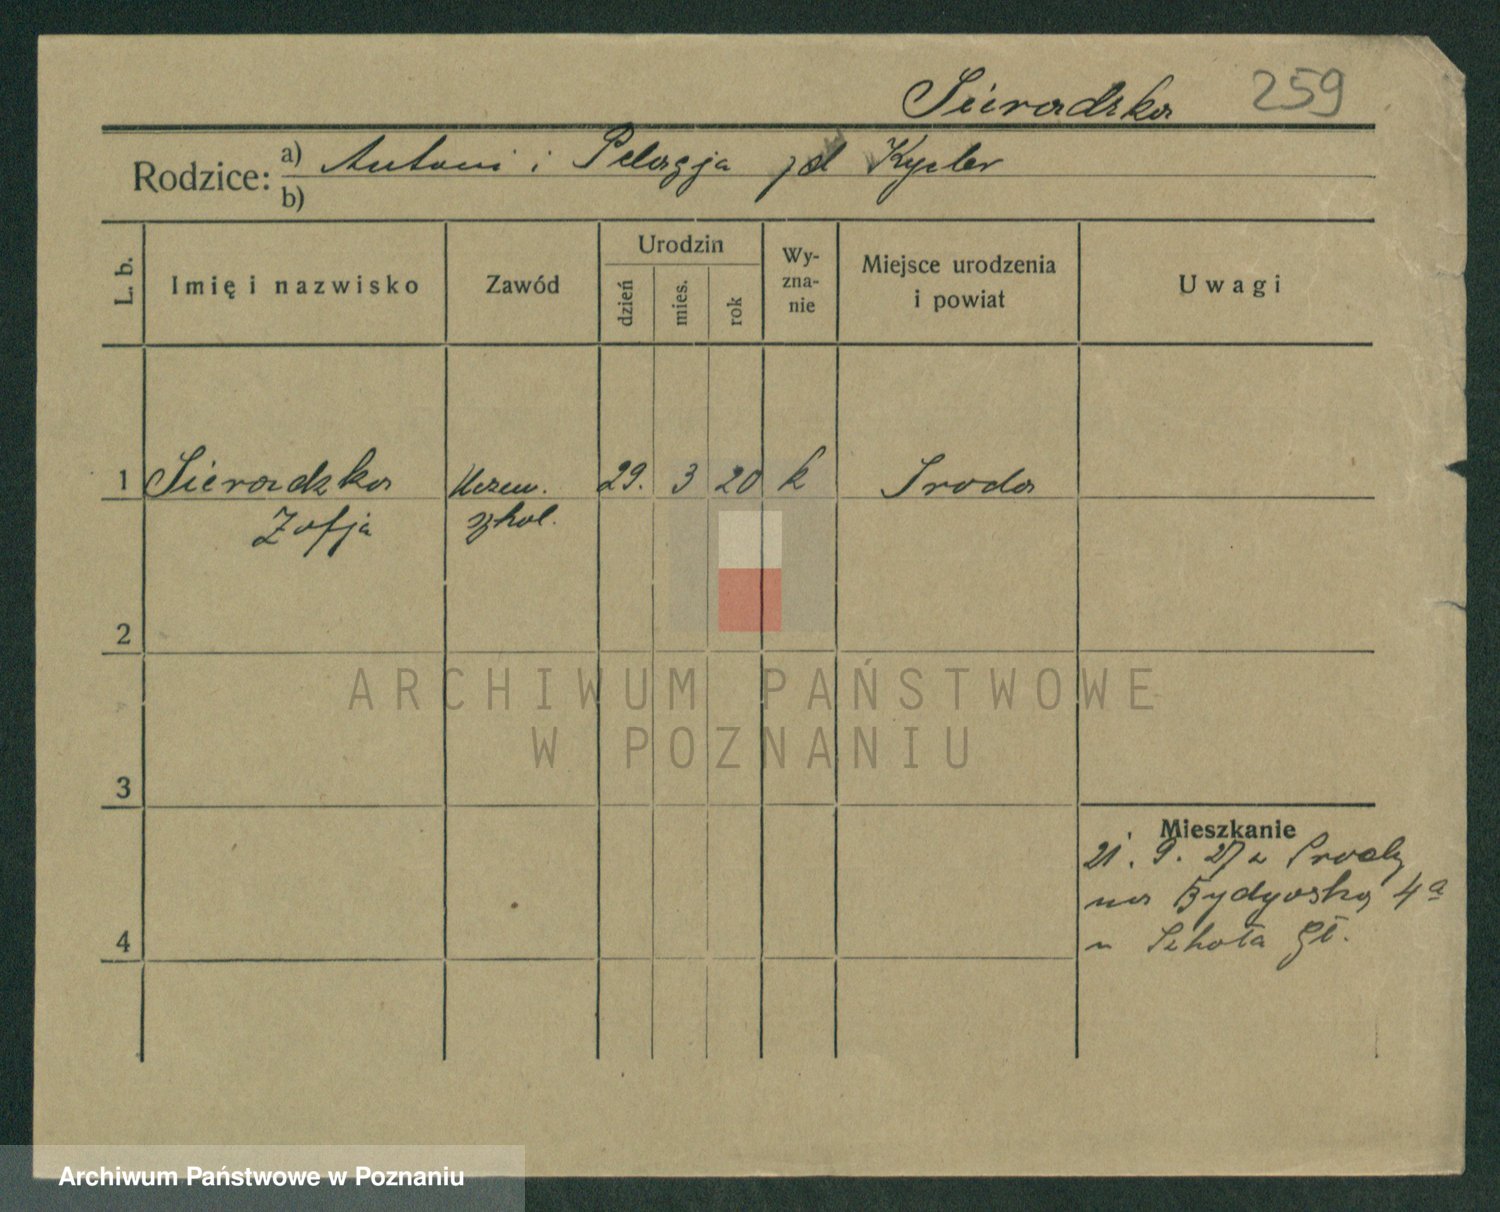 Sieradzka 259
Rodzice: a) Antoni i Pelagja zd Kysler
b)
L. b. Imię i nazwisko Zawód Urodzin dzień mies. rok Wy-zna-nie Miejsce urodzenia i powiat Uwagi
1 Sieradzka Uczen. 29. 3 20 k Sroda
Zofja szkol.
2
ARCHIWUM PAŃSTWOWE
W POZNANIU
3
Mieszkanie
21. 9. 27 z Srody
na Bydgoską 4a
4
Archiwum Państwowe w Poznaniu